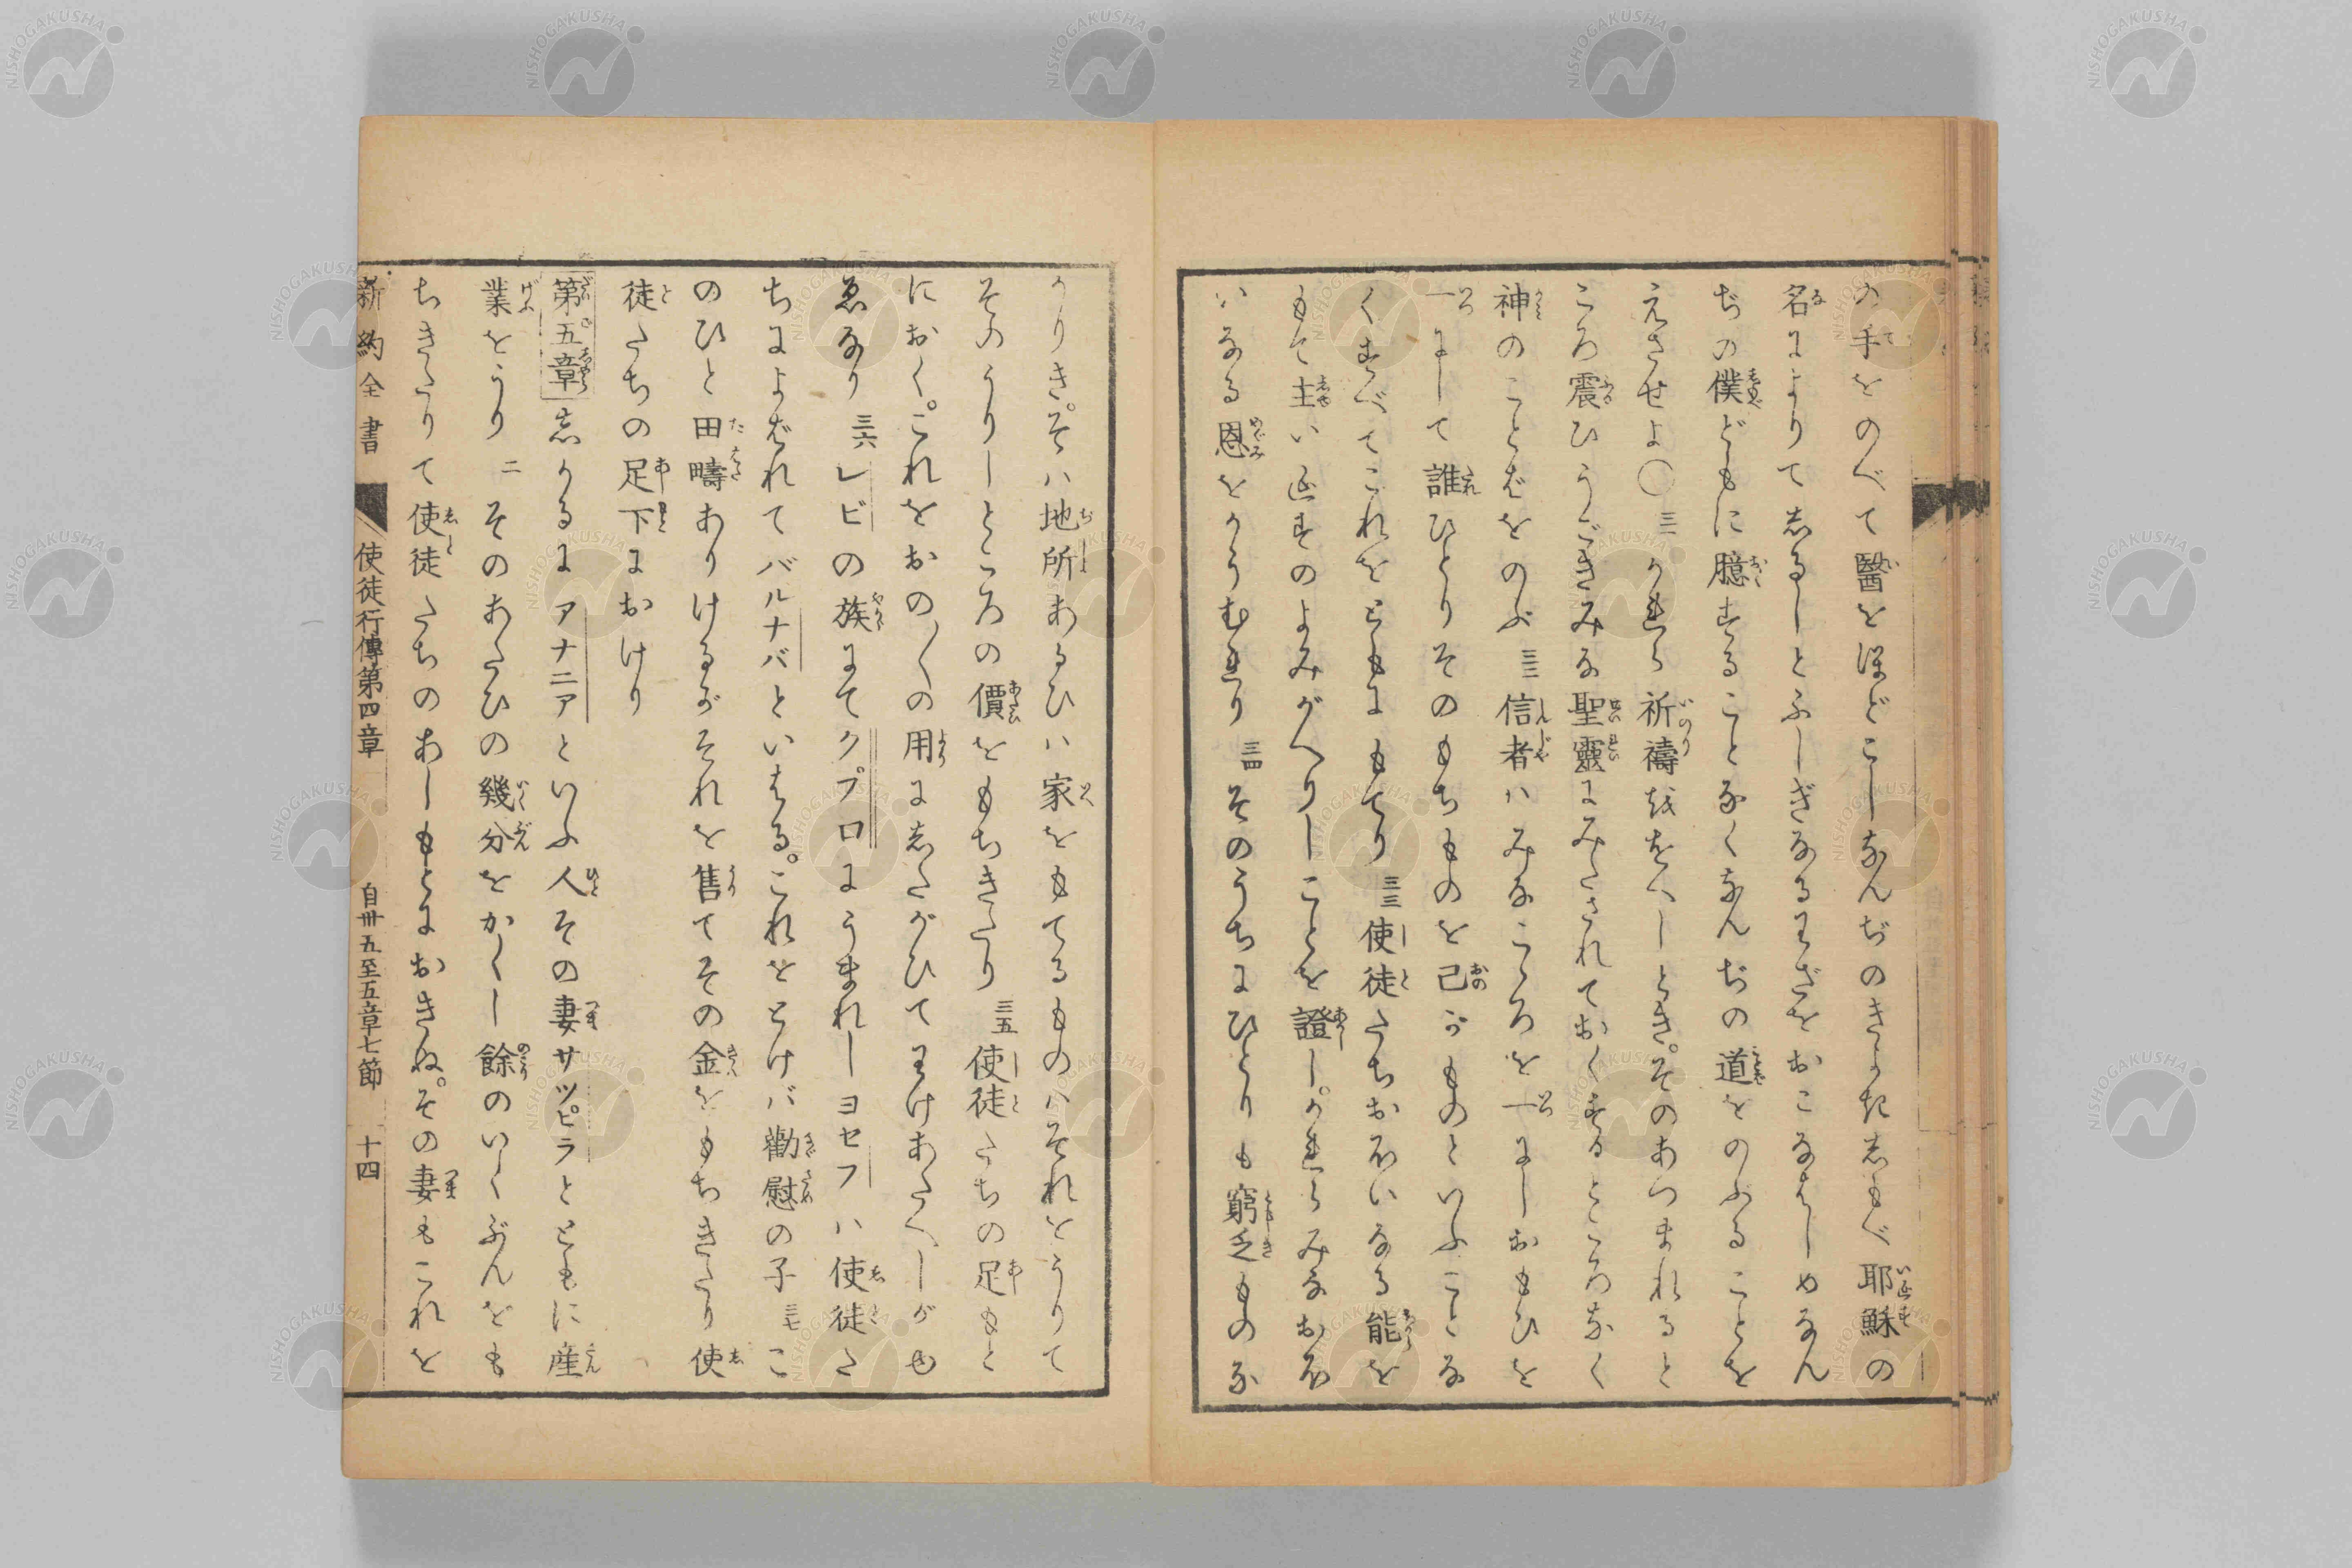 の手をのべて醫をほどこしなんぢのきよきしもべ耶穌の
名によりてしるしとふしぎなるわざをおこなはしめなん
ぢの僕どもに臆することなくなんぢの道をのぶることを
えさせよ〇三一かれら祈禱ををへしとき。そのあつまれると
ころ震ひうごきみな聖靈にみたされておくするところなく
神のことばをのぶ三二信者ハみなこゝろを一にしおもひを
一にして誰ひとりそのもちものを己がものといふことな
くすべてこれをともにもてり三三使徒たちおほいなる能を
もて主いゑすのよみがへりしことを證し。かれらみなおほ
いなる恩をかうむれり三四そのうちにひとりも窮乏ものな
かりき。そハ地所あるひハ家をもてるものハそれをうりて
そのうりしところの價をもちきたり三五使徒たちの足もと
におく。これをおの〳〵の用にしたがひてわけあたへしがゆ
ゑなり三六レビの族にてクプロにうまれしヨセフハ使徒た
ちによばれてバルナバといはる。これをとけバ勸慰の子三七こ
のひと田疇ありけるがそれを售てその金をもちきたり使
徒たちの足下におけり
第五章しかるにアナニアといふ人その妻サツピラとともに産
業をうり二そのあたひの幾分をかくし餘のいくぶんをも
ちきたりて使徒たちのあしもとにおきぬ。その妻もこれを
新約全書 使徒行傳第四章 自卅五至五章七節 十四
NISHOGAKUSHA